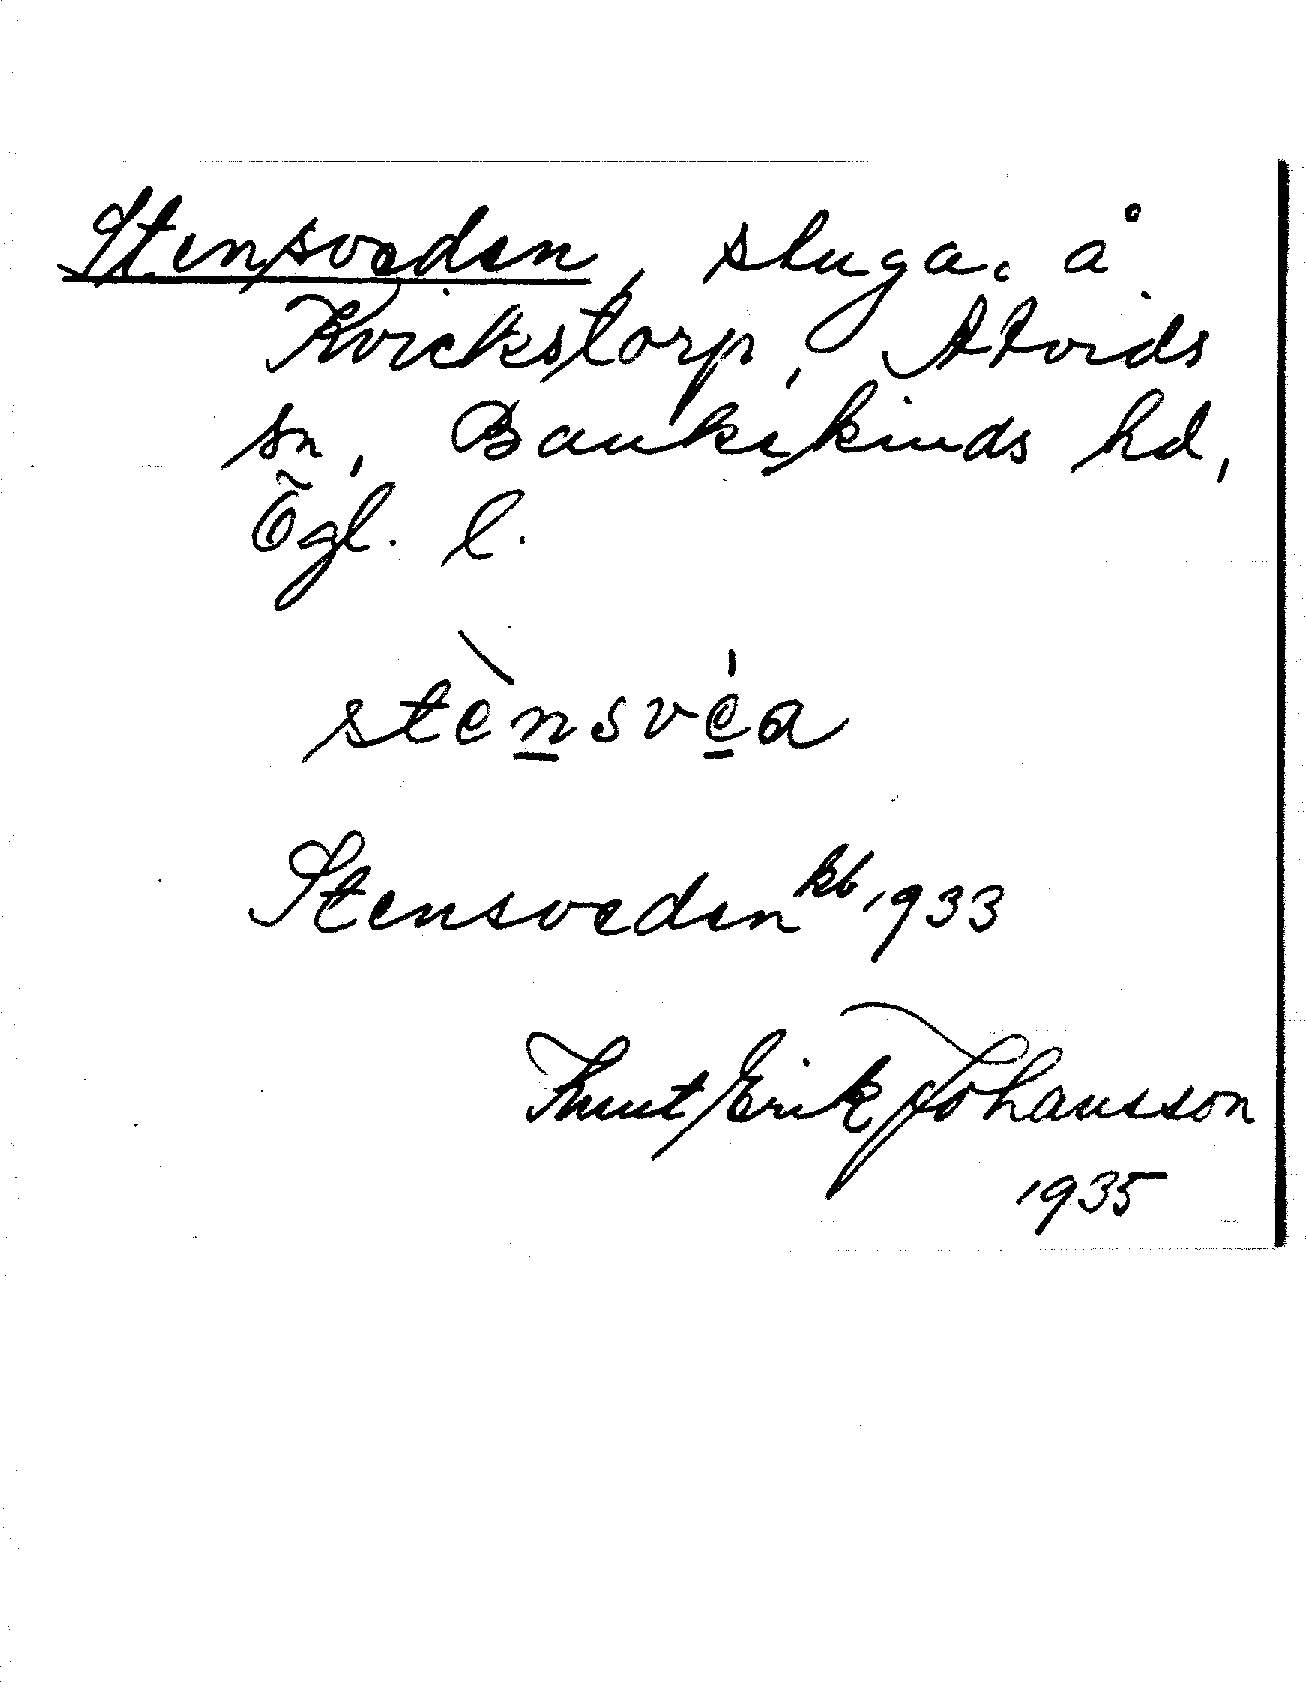 Stensveden, stuga å
Kvickstorp, Åtvids
sn, Bankekinds hd,
Ögl. l.
stènsvéa
Stensveden kb 1933
Knut Erik Johansson
1935